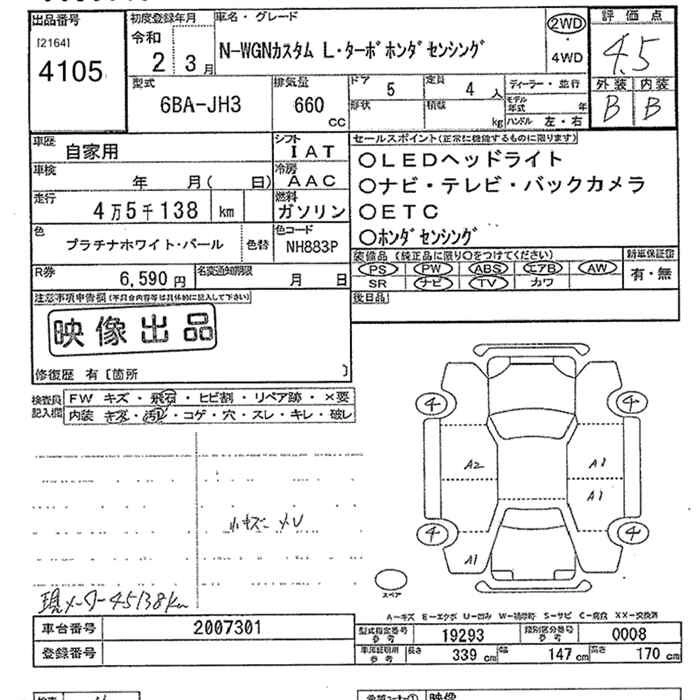 出品番号
[2164]
4105
初度登録年月
令和
2 年 3 月
車名・グレード
N-WGNカスタム L・ターボホンダセンシング
2WD
・
4WD
評価点
4.5
外装 内装
B B
型式
6BA-JH3
排気量
660
cc
ドア 5
定員 4 人
形状
積載 kg
ディーラー・並行
モデル年式 年
ハンドル 左・右
車歴 自家用
車検 年 月( 日)
走行 4万5千138 km
色 プラチナホワイト・パール 色替
シフト IAT
冷房 AAC
燃料 ガソリン
色コード NH883P
R券 6,590円
名変通知期限 月 日
セールスポイント(正常に機能するものに限ります)
○LEDヘッドライト
○ナビ・テレビ・バックカメラ
○ETC
○ホンダセンシング
装備品 (純正品に限り○をつけてください)
PS PW ABS エアB AW
SR ナビ TV カワ
新車保証書
有・無
後日品
注意事項申告欄(不具合内容等は具体的に記入して下さい)
映像出品
修復歴 有〔箇所 〕
検査員記入欄
FW キズ・飛石・ヒビ割・リペア跡・×要
内装 キズ・汚れ・コゲ・穴・スレ・キレ・破レ
小キズ メU
現メーター45138km
4 4
A2 A1
A1
4 4
A1
スペア
A-キズ E-エクボ U-凹み W-補修跡 S-サビ C-腐食 XX-交換済
車台番号 2007301
登録番号
型式指定番号参考 19293
類別区分番号参考 0008
車庫証明用参考 長さ 339 cm 幅 147 cm 高さ 170 cm
映像